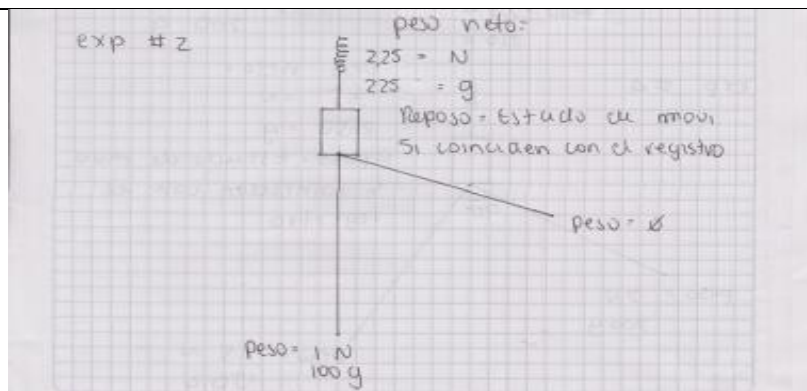 exp # 2
peso neto:
2,25 = N
225 = g
Reposo = Estado de movi
Si coinciden con el registro
peso = Ø
Peso = 1 N
100 g